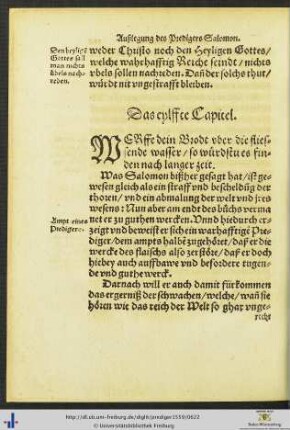 Außlegung des Predigers Salomon.
Den heyligẽ
Gottes sall
man nichts
übels nach-
reden.
weder Christo noch den Heyligen Gottes/
welche wahrhafftig Reiche seindt / nichts
vbels sollen nachreden. Dañ der solchs thut/
würdt nit vngestrafft bleiben.
Das eylffte Capitel.
WErffe dein Brodt vber die flies-
sende wasser / so würdstu es fin-
den nach langer zeit.
Was Salomon bißher gesagt hat / ist ge-
wesen gleich als ein straff vnd bescheldüg der
thoren / vnd ein abmalung der welt vnd jres
wesens: Nun aber am endt des büchs verma
net er zu guthen wercken. Vnnd hiedurch er-
Ampt eines
Predigers
zeigt vnd beweist er sich ein warhafftige Pre-
diger / dem ampts halbẽ zugehöret / daß er die
wercke des flaischs also zerstöre / daß er doch
hiebey auch auffbawe vnd befordere tugen-
de vnd guthe werck.
Darnach will er auch damit fürkommen
das ergerniß der schwachen / welche / wañ sie
hören wie das reich der Welt so ghar vnge-
recht
http://dl.ub.uni-freiburg.de/diglit/prediger1559/0622
© Universitätsbibliothek Freiburg
Baden-Württemberg